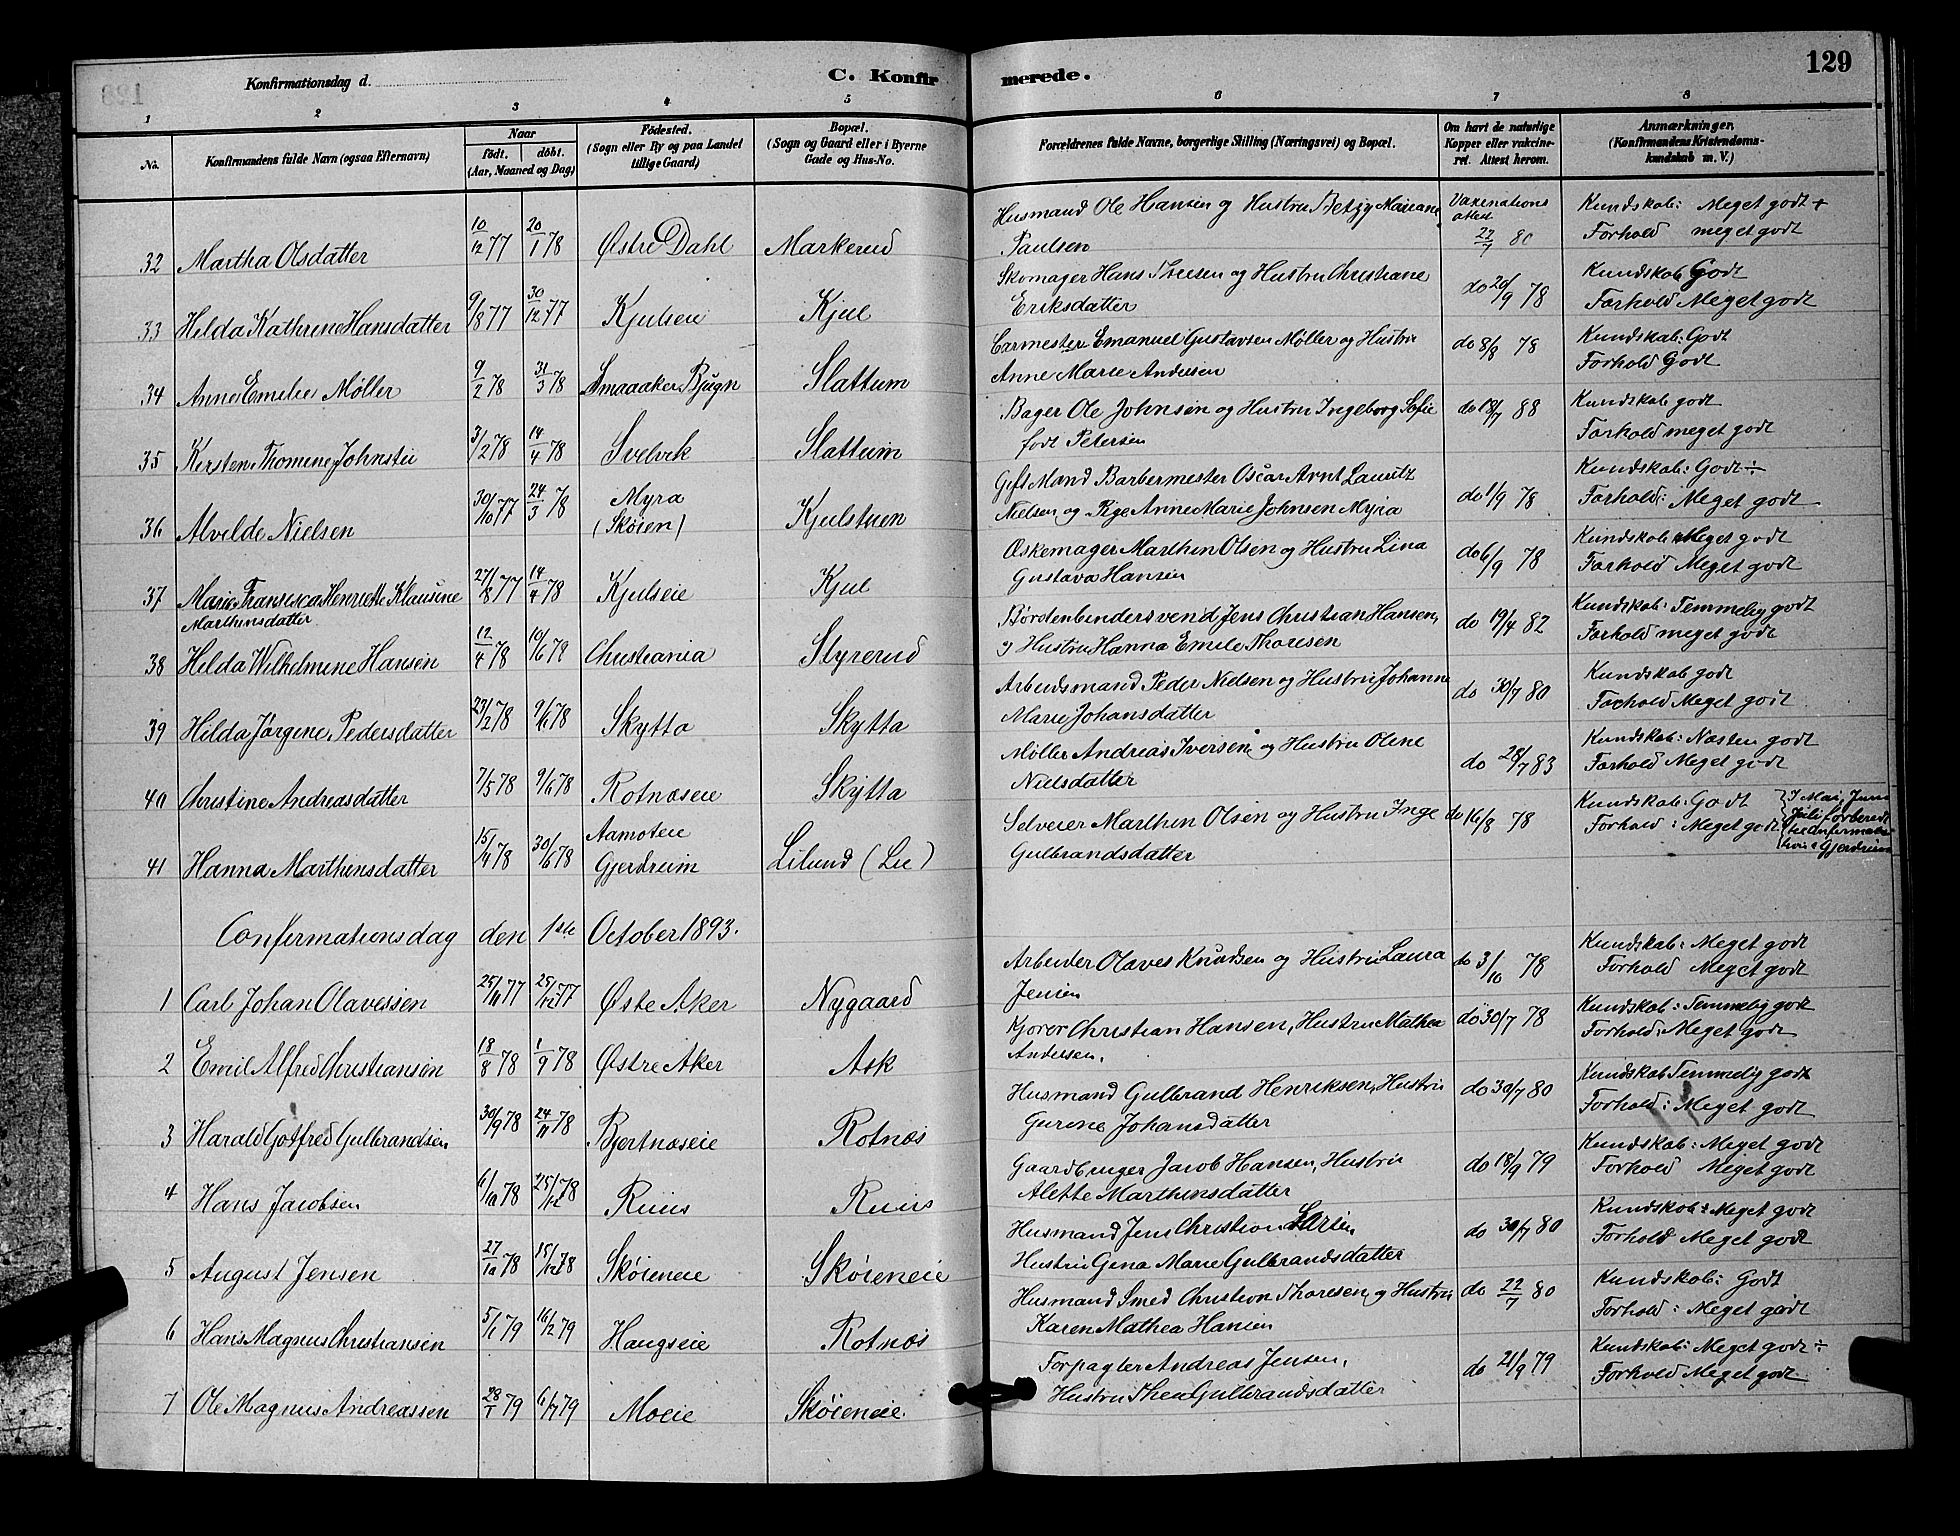 129
Konfirmationsdag d.
C. Konfirmerede.
1 2 3 4 5 6 7 8
No. Konfirmandens fulde Navn (ogsaa Efternavn) Naar født. døbt. (Aar, Maaned og Dag) Fødested. (Sogn eller By og paa Landet tillige Gaard) Bopæl. (Sogn og Gaard eller i Byerne Gade og Hus-No. Forældrenes fulde Navne, borgerlige Stilling (Næringsvei) og Bopæl. Om havt de naturlige Kopper eller vakcineret. Attest herom. Anmærkninger. (Konfirmandens Kristendomskundskab m. V.)
32 Martha Olsdatter 10/12 77 20/1 78 Østre Dahl Markerud Husmand Ole Hansen og Hustru Betzy Mariane Paulsen Vaxinations attest 22/7 80 Kundskab: Meget godt + Forhold meget godt
33 Hilda Kathrine Hansdatter 9/8 77 30/12 77 Kjulseie Kjul Skomager Hans Thresen og Hustru Christiane Eriksdatter do 20/9 78 Kundskab Godt Forhold Meget godt
34 Anne Emilie Møller 9/2 78 31/3 78 Smaaaker, Bjugn Slattum Garmester Emanuel Gustavsen Møller og Hustru Anne Marie Andersen do 8/8 78 Kundskab: Godt Forhold Godt
35 Kirstene Thomine Johnsen 3/2 78 14/4 78 Svelvik Slattum Bager Ole Johnsen og Hustru Ingeborg Sofie født Petersen do 18/7 88 Kundskab godt Forhold meget godt
36 Alvilde Nielsen 30/10 77 24/3 78 Myra (Skøien) Kjulstuen Gift Mand Barbermester Oscar Arnt Lauritz Nielsen og Pige Anne Marie Johnsen Myra do 1/9 78 Kundskab: Godt ÷ Forhold: Meget godt
37 Marie Fransisca Henriette Klausine Marthinsdatter 27/8 77 14/4 78 Kjulseie Kjul Æskemager Marthin Olsen og Hustru Lina Gustava Hansen do 6/9 78 Kundskab: Meget godt Forhold Meget godt
38 Hilda Wilhelmine Hansen 12/4 78 10/6 78 Christiania Styrerud Børstenbindersvend Jens Christian Hansen, og Hustru Hanna Emilie Thoresen do 19/4 82 Kundskab: Temmelig godt Forhold meget godt
39 Hilda Jørgine Pedersdatter 23/2 78 9/6 78 Skytta Skytta Arbeidsmand Peder Nielsen og Hustru Johanne Marie Johansdatter do 30/7 80 Kundskab godt Forhold Meget godt
40 Christine Andreasdatter 7/5 78 9/6 78 Rotnæseie Skytta Møller Andreas Iversen og Hustru Oline Nielsdatter do 28/7 83 Kundskab: Næsten godt Forhold Meget godt
41 Hanna Marthinsdatter 15/4 78 30/6 78 Aamoteie Gjerdrum Lilund (Lie) Selveier Marthin Olsen og Hustru Inge Gulbrandsdatter do 16/8 78 Kundskab: Godt Forhold: Meget godt I Mai, Juni Juli forberedt til Confirmation i Gjerdrum
Confirmationsdag den 1ste October 1893.
1 Carl Johan Olavessen 25/11 77 25/12 77 Østre Aker Nygaard Arbeider Olaves Knudsen og Hustru Laura Jensen do 3/10 78 Kundskab: Meget godt Forhold Meget godt
2 Emil Alfred Christiansen 18/8 78 1/9 78 Østre Aker Ask Kjører Christian Hansen, Hustru Mathea Andersen, do 30/7 78 Kundskab: Temmelig godt Forhold: Meget godt
3 Harald Gotfred Gulbrandsen 30/9 78 24/11 78 Bjertnæseie Rotnæs Husmand Gulbrand Henriksen, Hustru Gurine Johansdatter do 30/7 80 Kundskab Temmelig godt Forhold: Meget godt
4 Hans Jacobsen 6/10 78 25/12 78 Ruus Ruus Gaardbruger Jacob Hansen, Hustru Alette Marthinsdatter do 18/9 79 Kundskab: Meget godt Forhold Meget godt
5 August Jensen 27/10 78 15/12 78 Skøieneie Skøieneie Husmand Jens Christian Larsen Hustru Gina Marie Gulbrandsdatter do 30/7 80 Kundskab: Meget godt Forhold Meget godt
6 Hans Magnus Christiansen 5/1 79 16/2 79 Haugseie Rotnæs Husmand Smed Christian Thoresen og Hustru Karen Mathea Hansen do 22/7 80 Kundskab: Godt Forhold: Meget godt
7 Ole Magnus Andreassen 28/1 79 6/7 79 Moeie Skøieneie. Forpagter Andreas Jensen, Hustru Thea Gulbrandsdatter do 21/9 79 Kundskab: Meget godt ÷ Forhold Meget godt